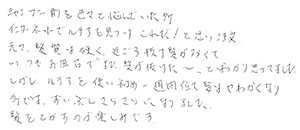 シャンプー剤を色々と悩んでいた所
インターネットでルチアを見つけ これだ！と思い注文
元々、髪質は硬く、近ごろ抜け髪が多くて
いつもお風呂で「また髪が抜けた〜」とわかり思ってました
しかし ルチアを使い初め一週間位で髪はやわかくなり
今では、ずいぶんさらさらになりました。
髪をとかすのが楽しみです。